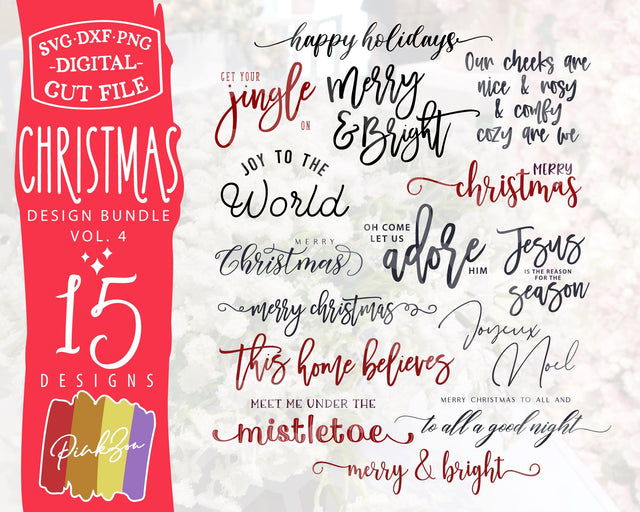 SVG·DXF·PNG
-DIGITAL-
CUT FILE
CHRISTMAS
DESIGN BUNDLE
VOL. 4
15
DESIGNS
PinkZou
happy holidays
GET YOUR
jingle
ON
Merry
& Bright
Our cheeks are
nice & rosy
& comfy
cozy are we
JOY TO THE
World
MERRY
christmas
OH COME
LET US
adore
HIM
Jesus
IS THE REASON
FOR THE
season
MERRY
Christmas
merry christmas
Joyeux
Noel
this home believes
MEET ME UNDER THE
mistletoe
MERRY CHRISTMAS TO ALL AND
to all a good night
merry & bright